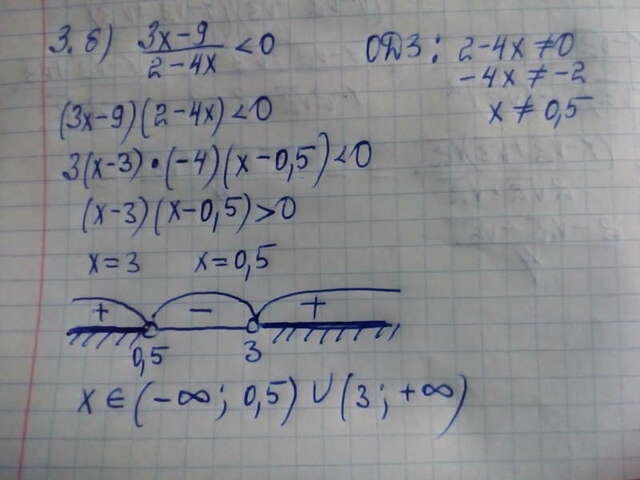 3. б) (3x-9)/(2-4x) < 0
ОДЗ: 2-4x ≠ 0
-4x ≠ -2
x ≠ 0,5
(3x-9)(2-4x) < 0
3(x-3)•(-4)(x-0,5) < 0
(x-3)(x-0,5) > 0
x=3 x=0,5
+ - +
0,5 3
x ∈ (-∞; 0,5) ∪ (3; +∞)